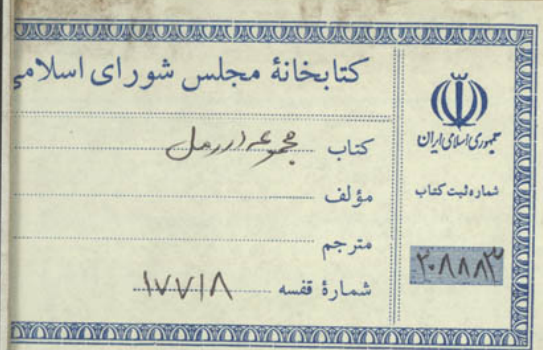 کتابخانهٔ مجلس شورای اسلامی
کتاب مجموعه در رمل
مؤلف
مترجم
شمارهٔ قفسه ۱۷۷۱۸
جمهوری اسلامی ایران
شماره ثبت کتاب
۳۰۸۸۸۳